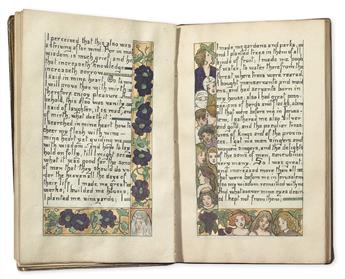 I perceived that this also was
a striving after wind. For in much
wisdom is much grief: and he
that increaseth knowledge
increaseth sorrow.
I said in mine heart,
will prove thee with mirth
therefore enjoy pleasure
behold, this also was vanity. I
said of laughter, it is mad: and
of mirth, what doeth it? I
searched in mine heart how to
cheer my flesh with wine,
mine heart yet guiding me with
wisdom, and how to lay hold
on folly, till I might see
what it was good for the sons
of men that they should do un-
der the heaven all the days of
their life. I made me great
works; I builded me houses;
I planted me vineyards;
I made me gardens and parks, and
I planted trees in them of all
kinds of fruit; I made me pools
of water, to water therefrom the
forest where trees were reared: I
bought menservants and maidens,
and had servants born in my
house; also I had great possess-
ions of herds and flocks, above
all that were before me in
Jerusalem: I gathered me also silver
and gold, and the peculiar treas-
ure of kings and of the provinces:
I gat me men singers and women
singers, and the delights
of the sons of men, concubines
very many. So I was great,
whatsoever mine eyes desired
I kept not from them;